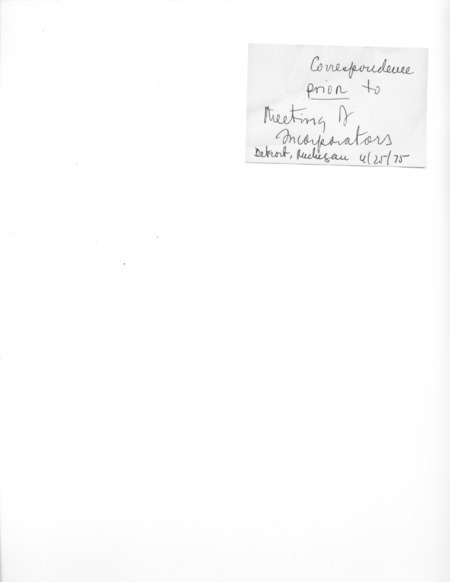 Correspondence
prior to
Meeting of
Incorporators
Detroit, Michigan 4/25/75